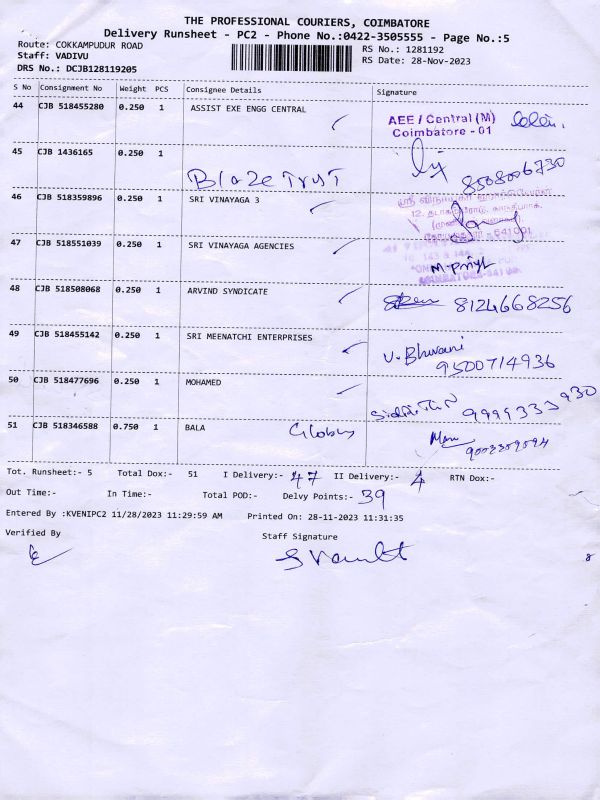 THE PROFESSIONAL COURIERS, COIMBATORE
Delivery Runsheet - PC2 - Phone No.:0422-3505555 - Page No.:5
Route: COKKAMPUDUR ROAD
Staff: VADIVU
DRS No.: DCJB128119205
RS No.: 1281192
RS Date: 28-Nov-2023
S No Consignment No Weight PCS Consignee Details Signature
44 CJB 518455280 0.250 1 ASSIST EXE ENGG CENTRAL
AEE / Central (M)
Coimbatore - 01
45 CJB 1436165 0.250 1
Blaze Trust 8508006730
46 CJB 518359896 0.250 1 SRI VINAYAGA 3
47 CJB 518551039 0.250 1 SRI VINAYAGA AGENCIES
M.Priya
48 CJB 518508068 0.250 1 ARVIND SYNDICATE
8124668256
49 CJB 518455142 0.250 1 SRI MEENATCHI ENTERPRISES
U. Bhuvani
9500714936
50 CJB 518477696 0.250 1 MOHAMED
9999333930
51 CJB 518346588 0.750 1 BALA Globus
Tot. Runsheet:- 5 Total Dox:- 51 I Delivery:- 47 II Delivery:- 4 RTN Dox:-
Out Time:- In Time:- Total POD:- Delvy Points:- 39
Entered By :KVENIPC2 11/28/2023 11:29:59 AM Printed On: 28-11-2023 11:31:35
Verified By Staff Signature